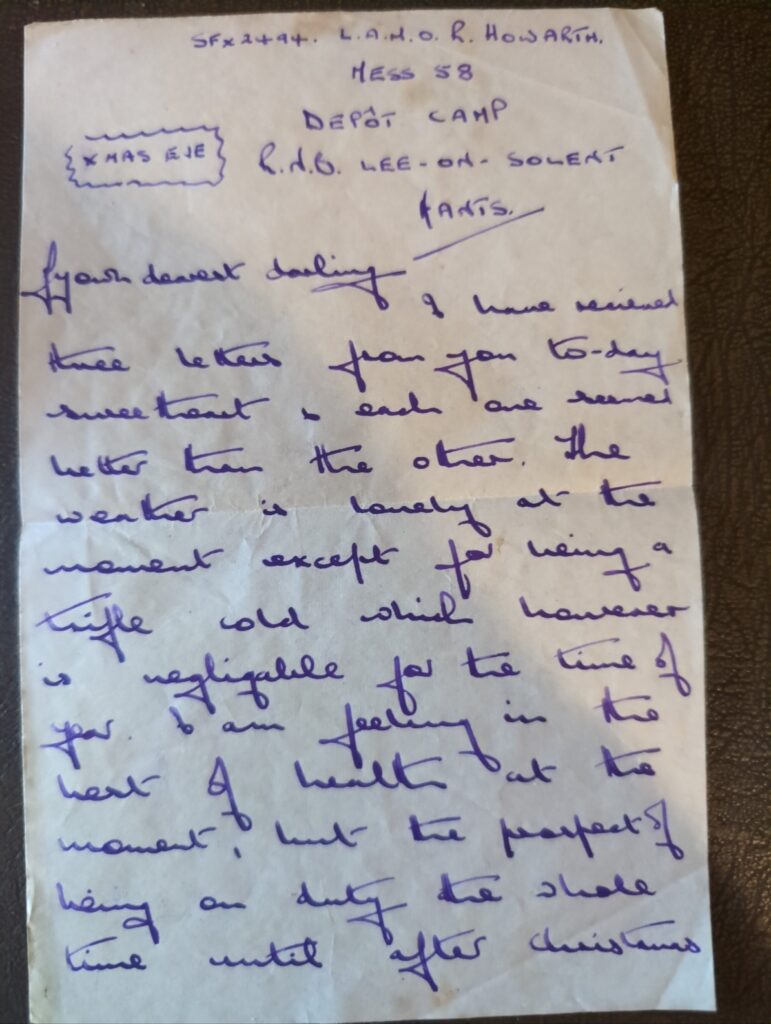 SFX2494. L.A.M.O. R. HOWARTH.
MESS 58
DEPÔT CAMP
XMAS EVE
R.N.B. LEE-ON-SOLENT
HANTS.
My own dearest darling
I have recieved
three letters from you to-day
sweetheart & each one seemed
better than the other. The
weather is lovely at the
moment except for being a
trifle cold which however
is negligable for the time of
year. I am feeling in the
best of health at the
moment, but the prospect of
being on duty the whole
time until after christmas